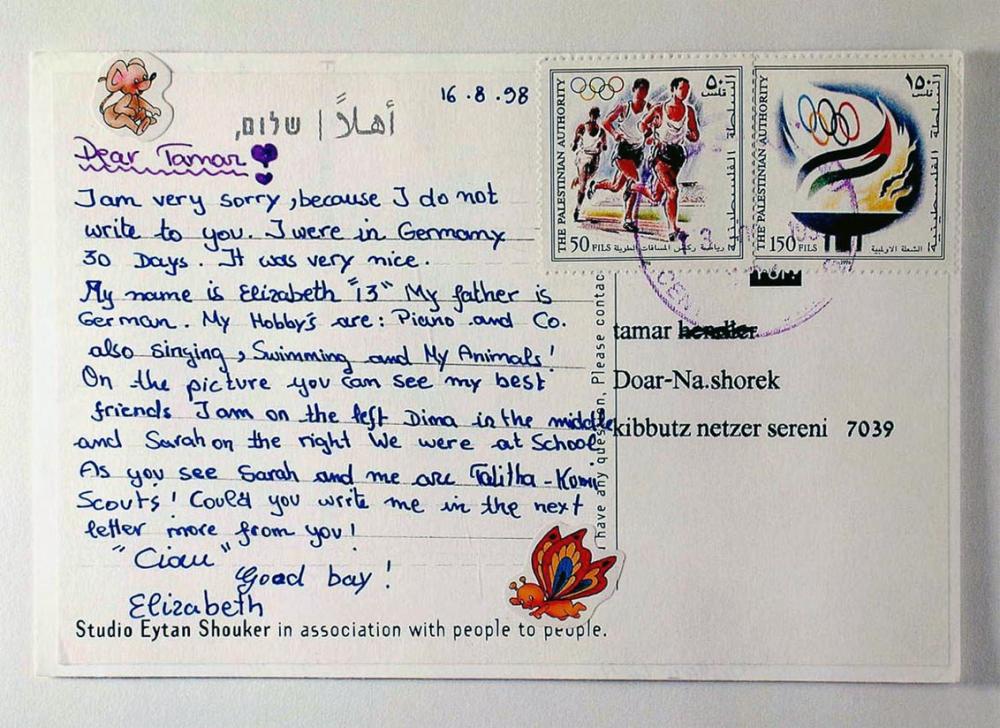 16.8.98
שלום, | أهلاً
Dear Tamar
I am very sorry, because I do not
write to you. I were in Germany
30 Days. It was very nice.
My name is Elizabeth "13" My father is
German. My Hobby's are: Piano and Co.
also singing, Swimming and My Animals!
On the picture you can see my best
friends I am on the left Dima in the middle
and Sarah on the right We were at School.
As you see Sarah and me are Talitha-Kumi
Scouts! Could you write me in the next
letter more from you!
"Ciau"
Good bay!
Elizabeth
Studio Eytan Shouker in association with people to people.
have any question, Please contac
THE PALESTINIAN AUTHORITY
٥٠
فلس
السلطة الفلسطينية
50 FILS
رياضة ركض المسافات الطويلة
THE PALESTINIAN AUTHORITY
١٥٠
فلس
السلطة الفلسطينية
150 FILS
الشعلة الاولمبية
CEN
tamar hendler
Doar-Na.shorek
kibbutz netzer sereni 7039